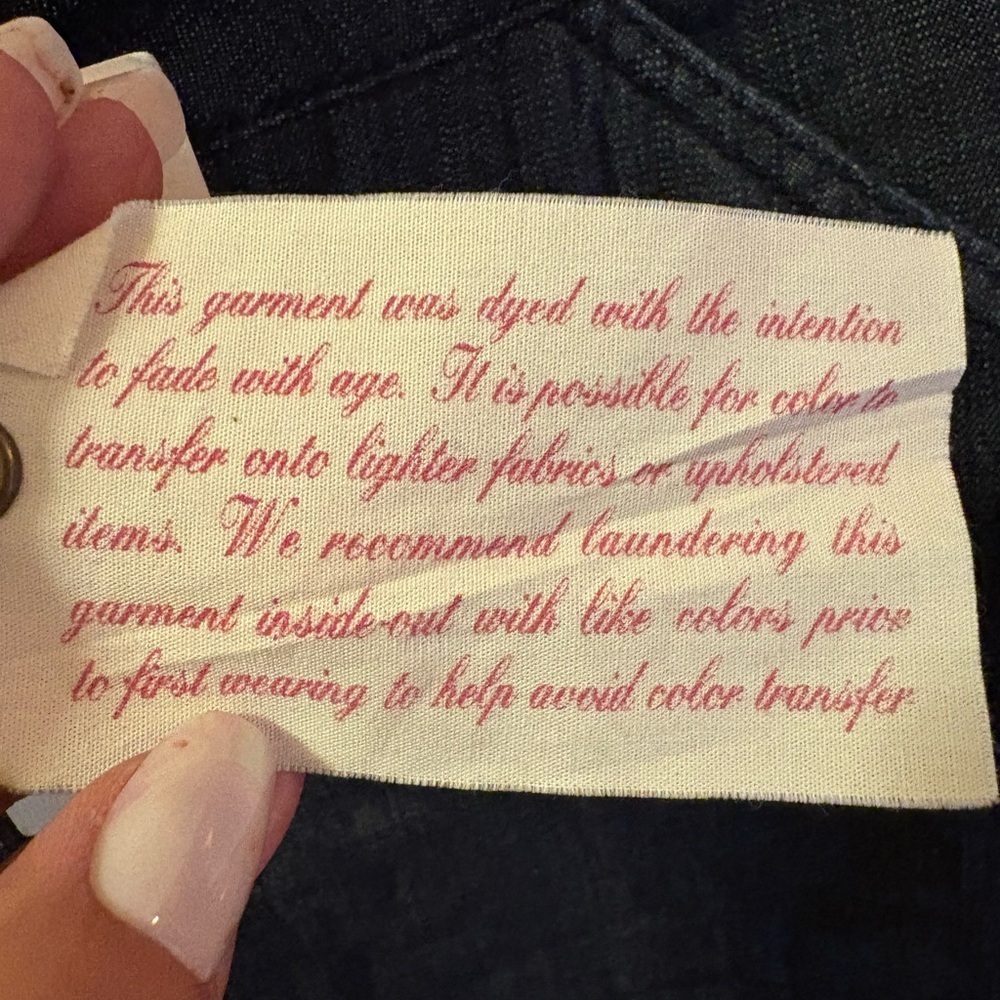 This garment was dyed with the intention
to fade with age. It is possible for color to
transfer onto lighter fabrics or upholstered
items. We recommend laundering this
garment inside-out with like colors prior
to first wearing to help avoid color transfer